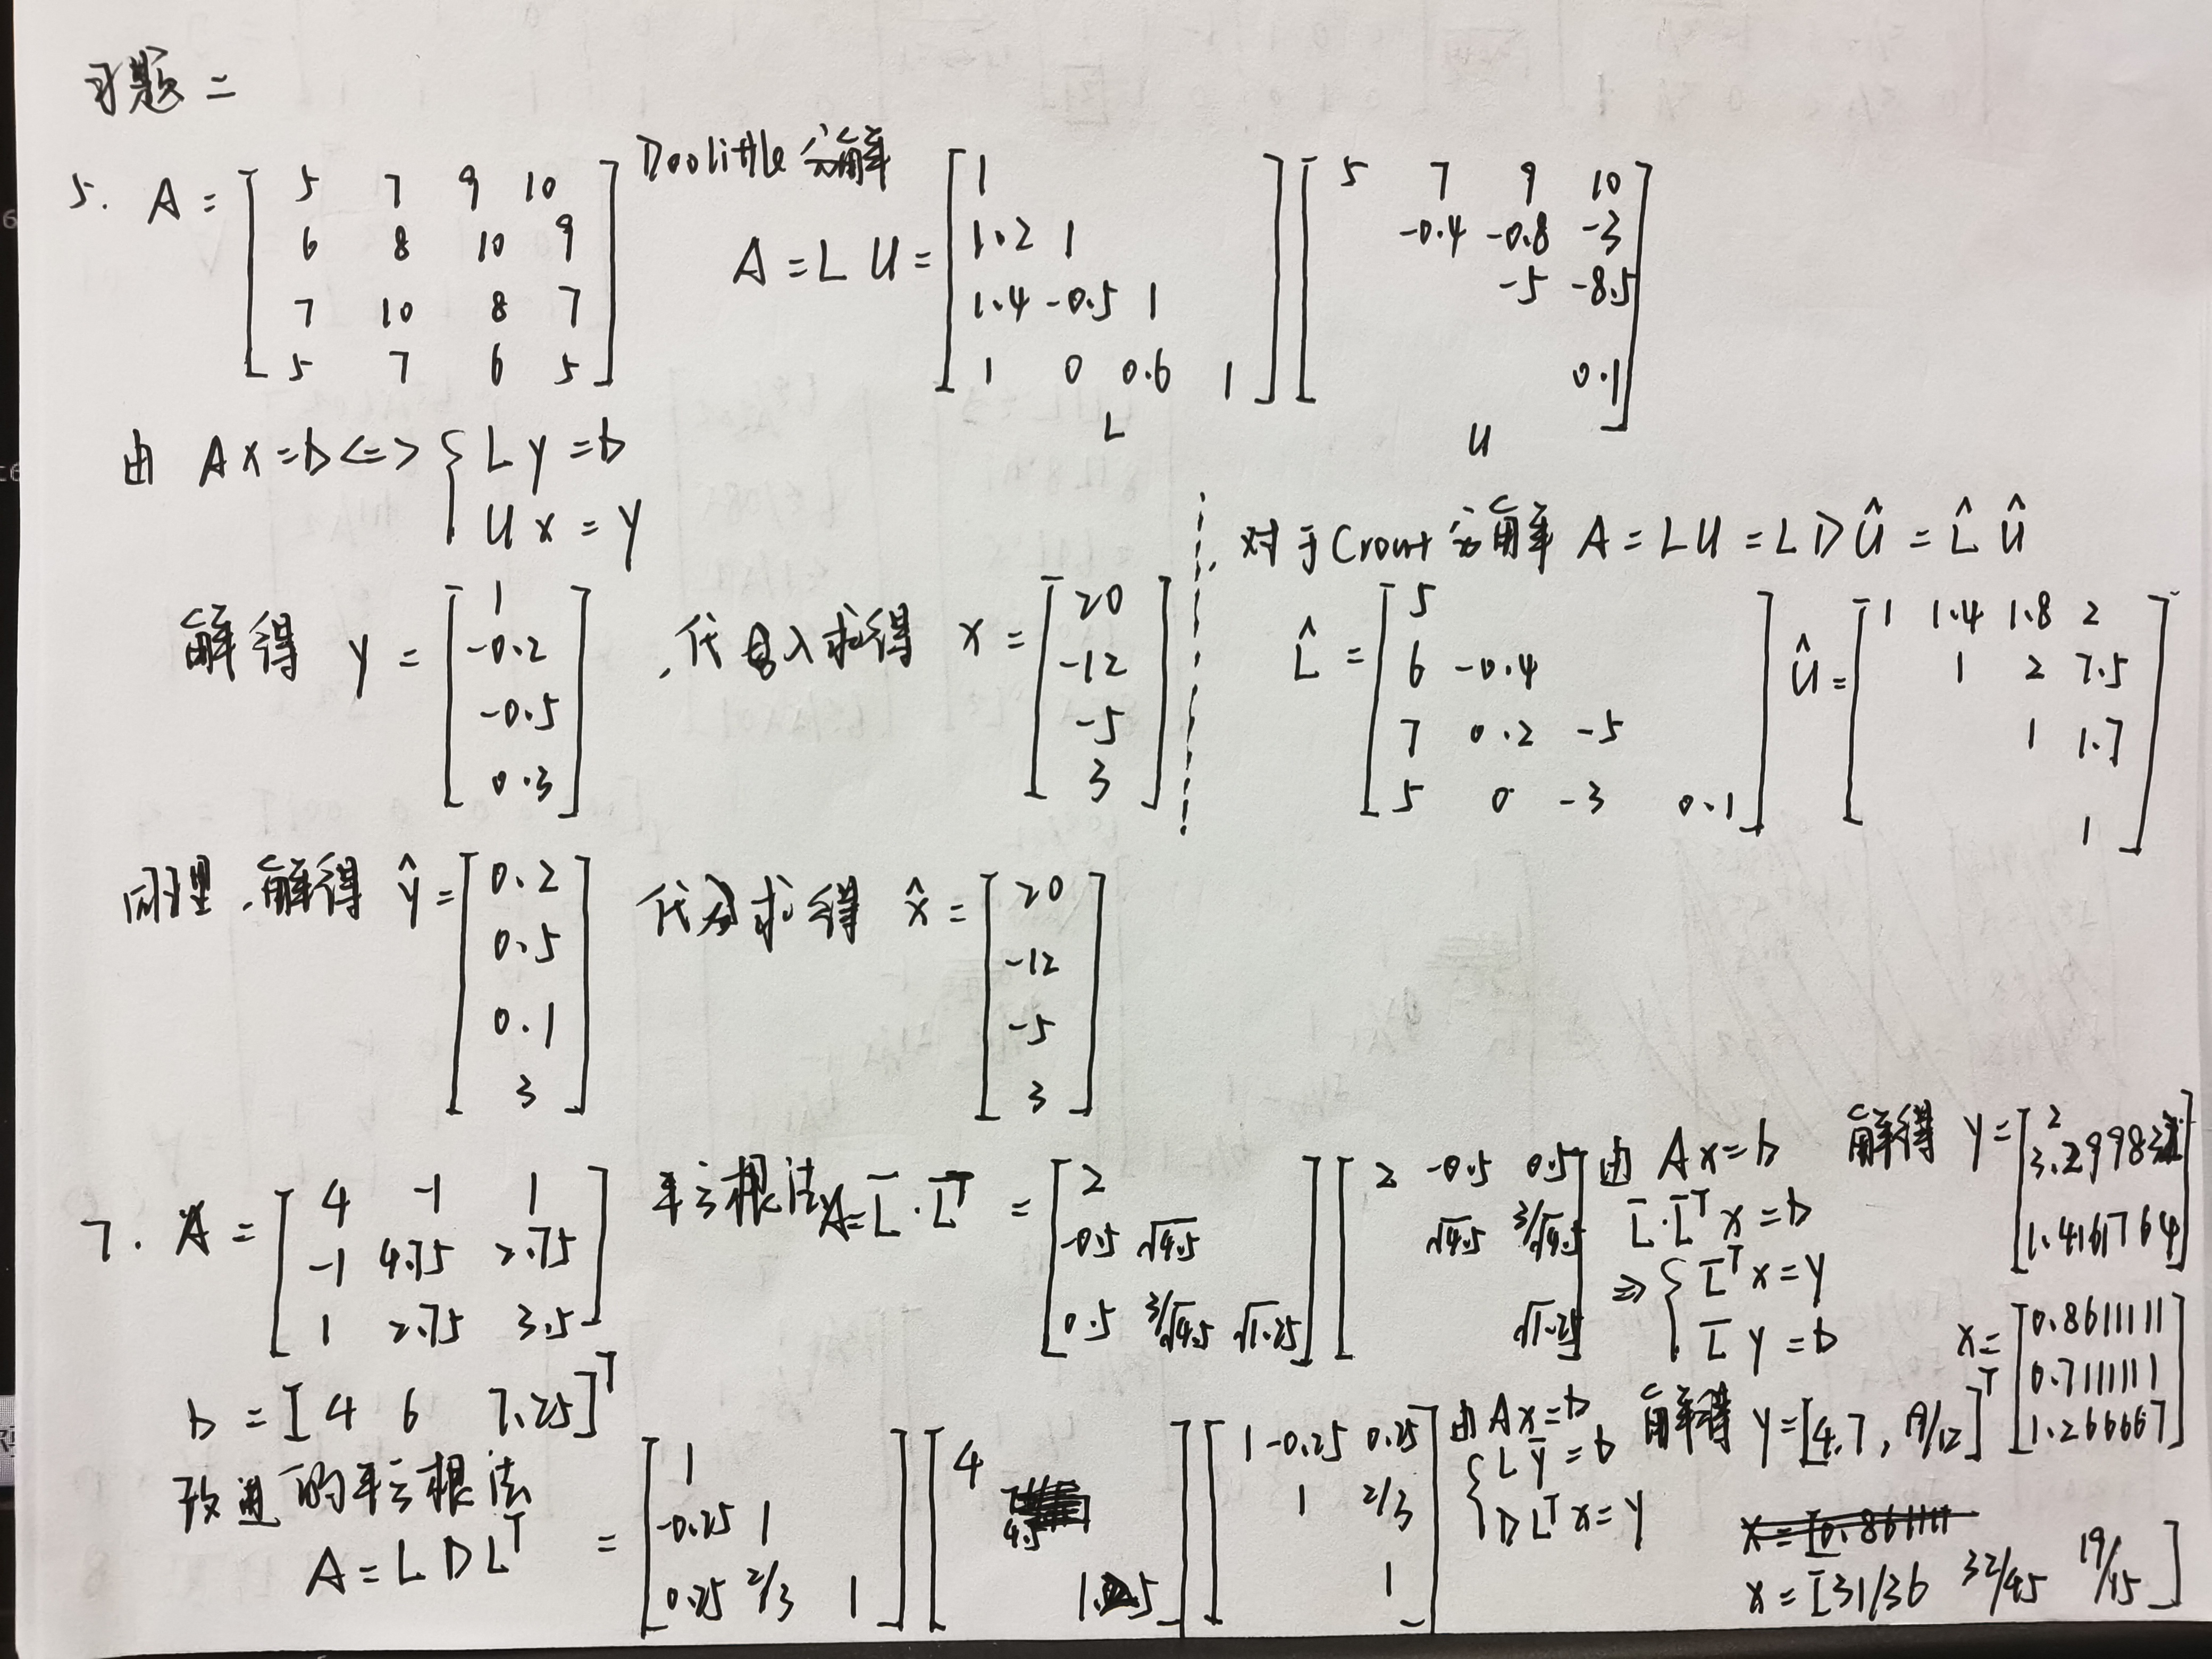 习题二
5. A = [ 5 7 9 10
6 8 10 9
7 10 8 7
5 7 6 5 ]
Doolittle分解
A = L U = [ 1
1.2 1
1.4 -0.5 1
1 0 0.6 1 ] [ 5 7 9 10
-0.4 -0.8 -3
-5 -8.5
0.1 ]
L
U
由 Ax=b <=> { Ly=b
Ux=y
解得 y = [ 1
-0.2
-0.5
0.3 ]
,代入求得 x = [ 20
-12
-5
3 ]
对于Crout分解 A = LU = LDÛ = L̂Û
L̂ = [ 5
6 -0.4
7 0.2 -5
5 0 -3 0.1 ]
Û = [ 1 1.4 1.8 2
1 2 7.5
1 1.7
1 ]
同理,解得 ŷ = [ 0.2
0.5
0.1
3 ]
代入求得 x̂ = [ 20
-12
-5
3 ]
7. A = [ 4 -1 1
-1 4.75 2.75
1 2.75 3.5 ]
b = [4 6 7.25]ᵀ
平方根法 A = L̄·L̄ᵀ = [ 2
-0.5 √4.5
0.5 3/√4.5 √1.25 ] [ 2 -0.5 0.5
√4.5 3/√4.5
√1.25 ]
由 Ax=b
L̄·L̄ᵀx=b
=> { L̄ᵀx=y
L̄y=b
解得 y = [ 2
3.29983
1.4161764 ]
x = [ 0.8611111
0.7111111
1.266667 ]
改进的平方根法
A = LDLᵀ = [ 1
-0.25 1
0.25 2/3 1 ] [ 4
4.5
1.25 ] [ 1 -0.25 0.25
1 2/3
1 ]
由 Ax=b
{ Ly=b
DLᵀx=y
解得 y=[4,7, 19/12]ᵀ
x=[0.861111
x=[31/36 32/45 19/15]